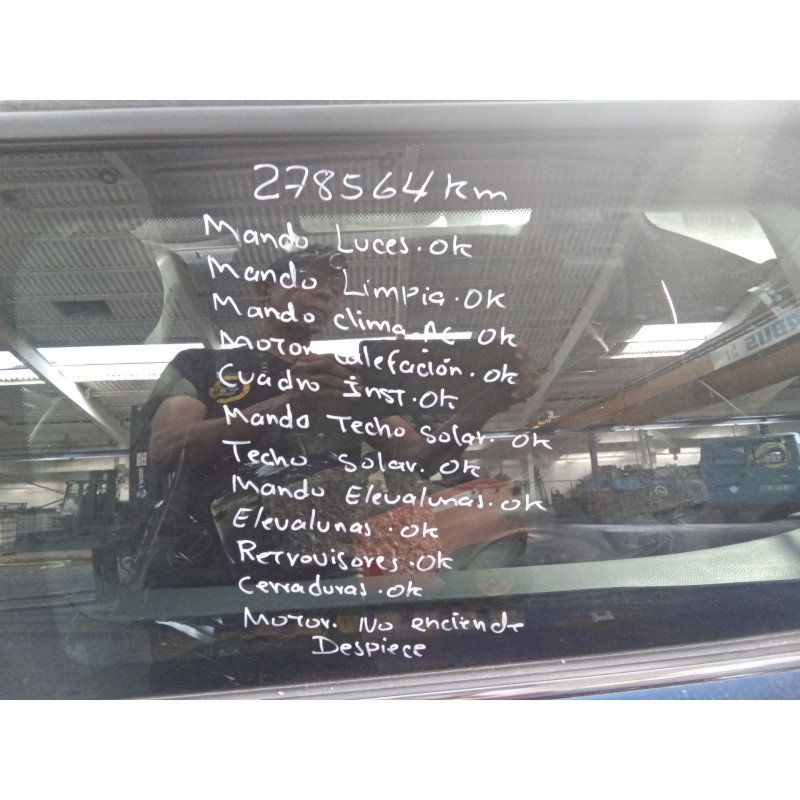 278564 km
Mando Luces. OK
Mando Limpia. OK
Mando clima AC OK
Motor calefación. OK
Cuadro inst. OK
Mando Techo Solar. OK
Techo Solar. OK
Mando Elevalunas. OK
Elevalunas. OK
Retrovisores. OK
Cerraduras. OK
Motor. No enciende
Despiece